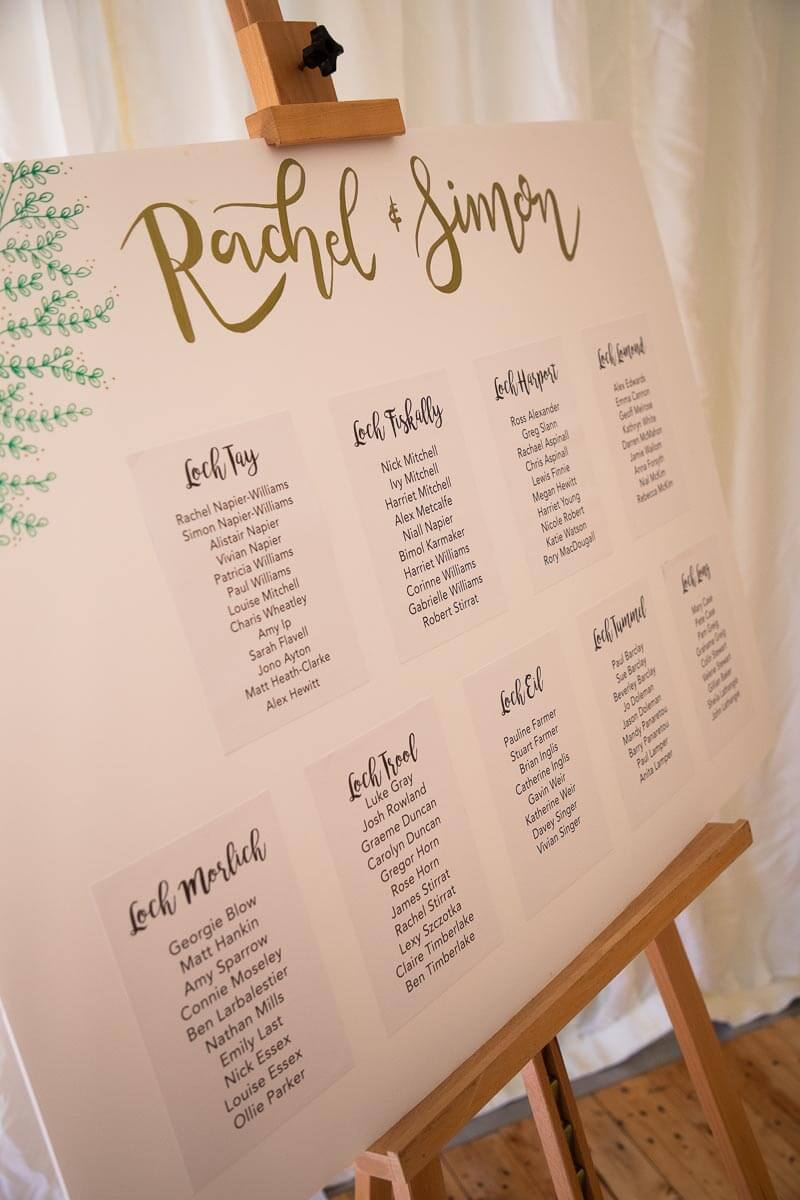 Rachel & Simon
Loch Tay
Rachel Napier-Williams
Simon Napier-Williams
Alistair Napier
Vivian Napier
Patricia Williams
Paul Williams
Louise Mitchell
Charis Wheatley
Amy Ip
Sarah Flavell
Jono Ayton
Matt Heath-Clarke
Alex Hewitt
Loch Fiskally
Nick Mitchell
Ivy Mitchell
Harriet Mitchell
Alex Metcalfe
Niall Napier
Bimol Karmaker
Harriet Williams
Corinne Williams
Gabrielle Williams
Robert Stirrat
Loch Harport
Ross Alexander
Greg Slann
Rachael Aspinall
Chris Aspinall
Lewis Finnie
Megan Hewitt
Harriet Young
Nicole Robert
Katie Watson
Rory MacDougall
Loch Lomond
Alex Edwards
Emma Cannon
Geoff Melrose
Kathryn White
Darren McMahon
Jamie Wallom
Anna Forsyth
Nial McKim
Rebecca McKim
Loch Morlich
Georgie Blow
Matt Hankin
Amy Sparrow
Connie Moseley
Ben Larbalestier
Nathan Mills
Emily Last
Nick Essex
Louise Essex
Ollie Parker
Loch Trool
Luke Gray
Josh Rowland
Graeme Duncan
Carolyn Duncan
Gregor Horn
Rose Horn
James Stirrat
Rachel Stirrat
Lexy Szczotka
Claire Timberlake
Ben Timberlake
Loch Eil
Pauline Farmer
Stuart Farmer
Brian Inglis
Catherine Inglis
Gavin Weir
Katherine Weir
Davey Singer
Vivian Singer
Loch Tummel
Paul Barclay
Sue Barclay
Beverley Barclay
Jo Doleman
Jason Doleman
Mandy Panaretou
Barry Panaretou
Paul Lamper
Anita Lamper
Loch Long
Mary Case
Pete Case
Pam Greig
Grahame Greig
Colin Stewart
Valerie Stewart
Gillian Baker
Sheila
John